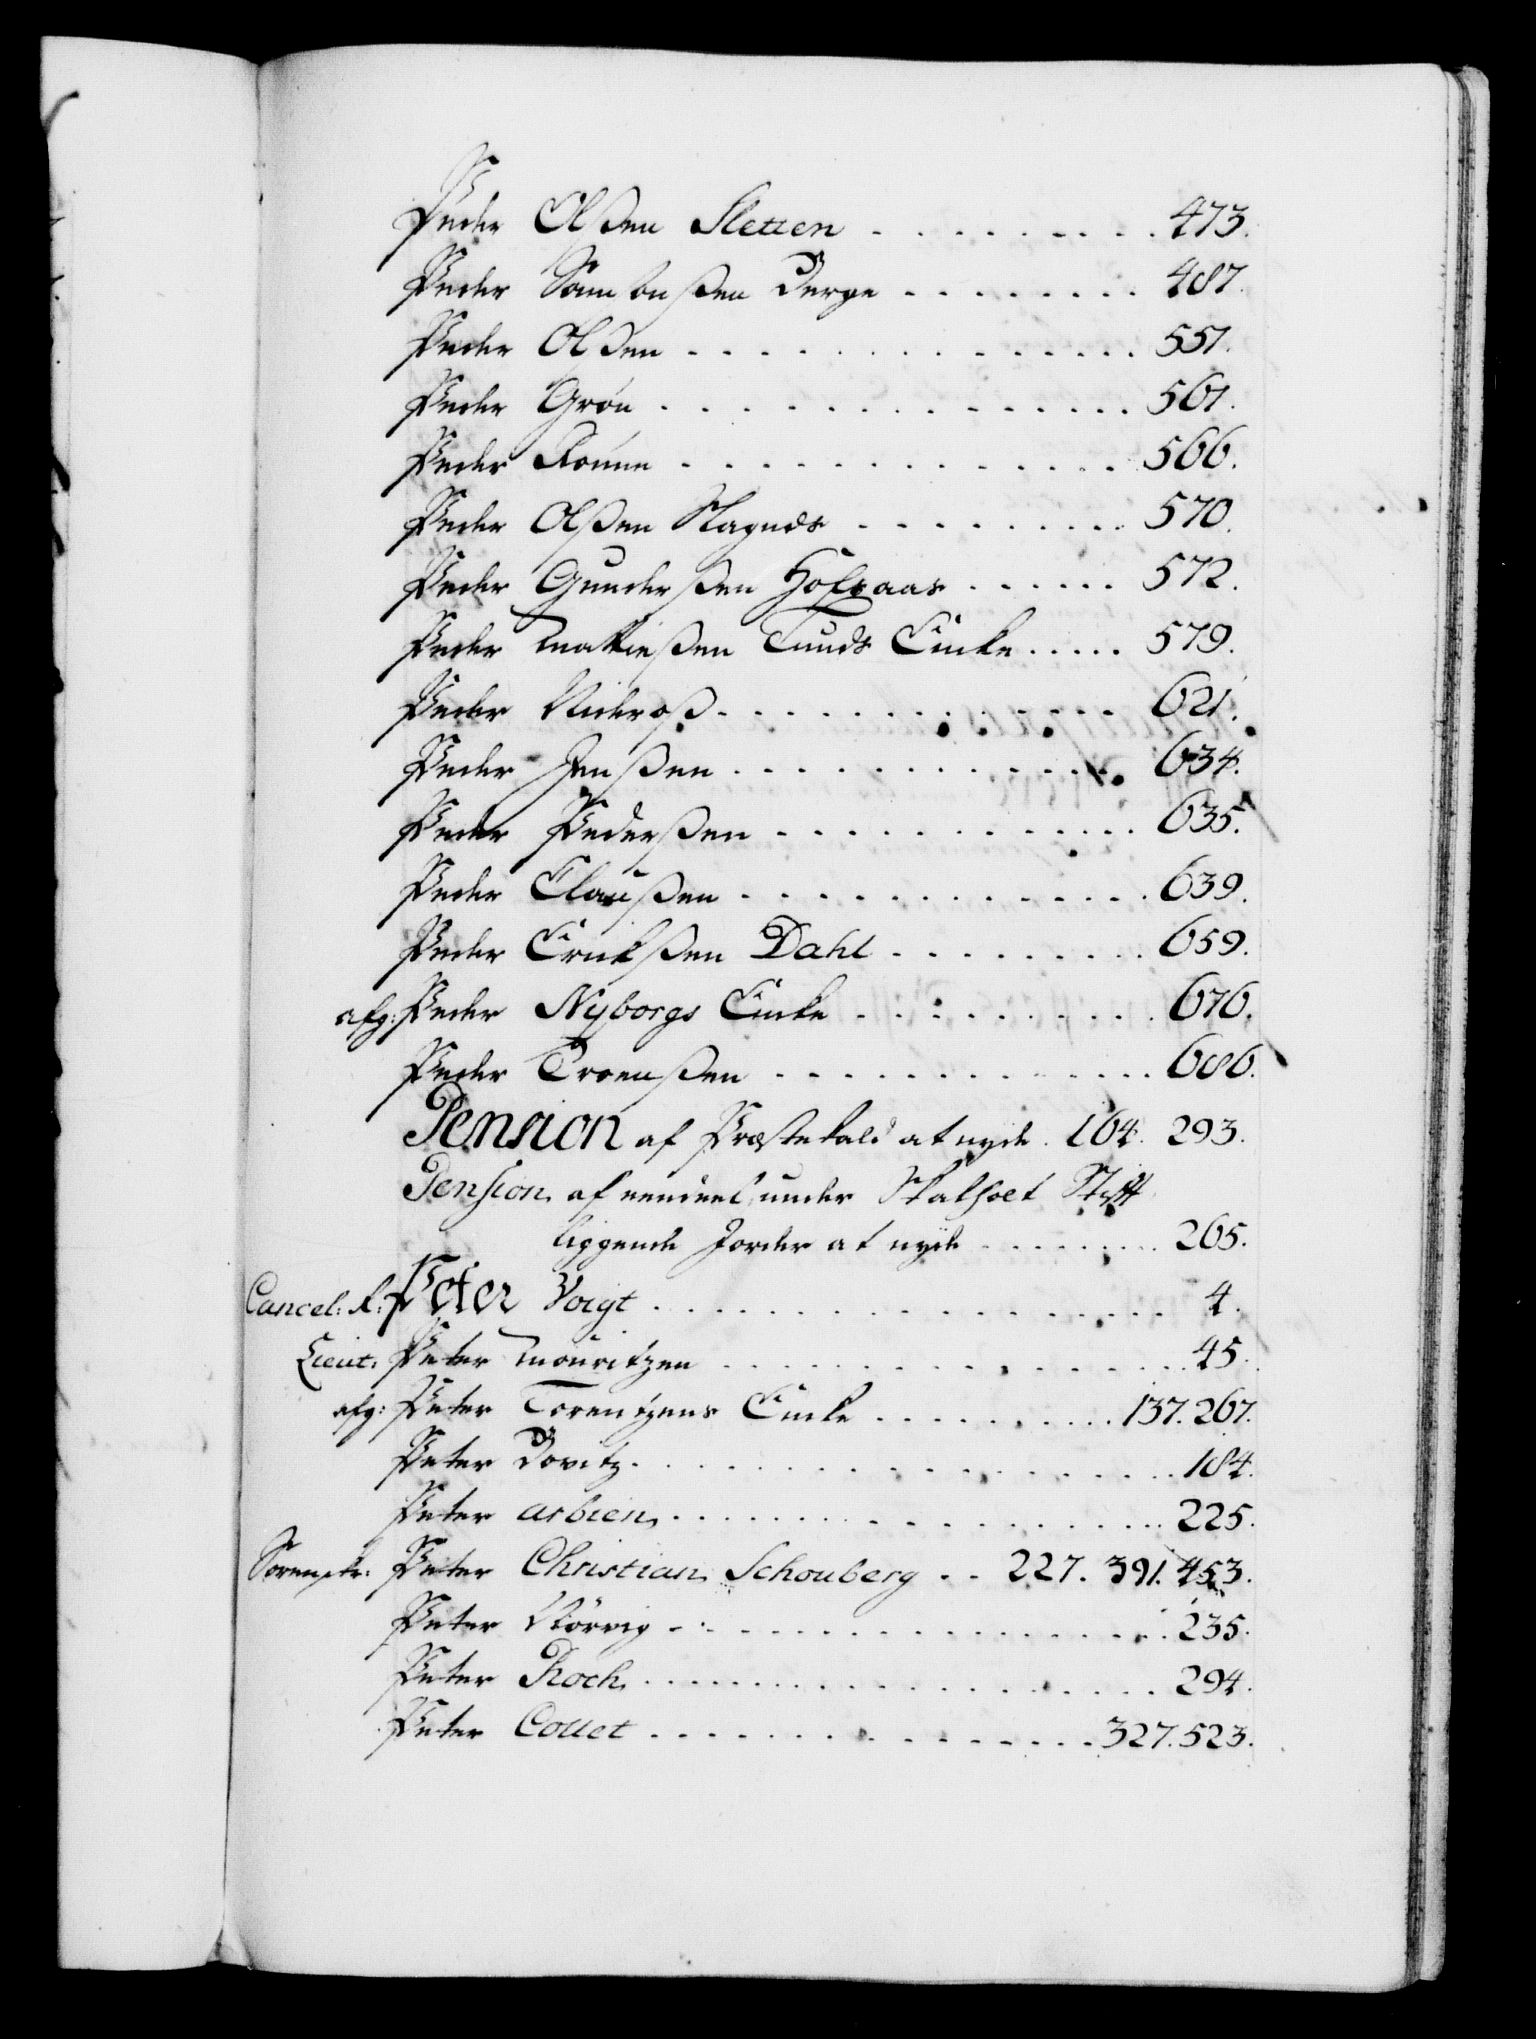 Peder Olsen Sletten - - - - - - - - - 473.
Peder - - - - - - - - 487.
Peder Olsen - - - - - - - - - - - - - - 557.
Peder Grøn - - - - - - - - - - - - - - 561.
Peder Rønne - - - - - - - - - - - - - 566.
Peder Olssen - - - - - - - - 570.
Peder Gunderssen Hofgaas - - - - - - 572.
Peder Mathiessen Lunds Encke - - - - - 579.
Peder Nideros - - - - - - - - - - - - 621.
Peder Jenssen - - - - - - - - - - - - 634.
Peder Pederssen - - - - - - - - - - - 635.
Peder Claussen - - - - - - - - - - - - 639.
Peder Erickssen Dahl - - - - - - - - - 659.
afg: Peder Nyborgs Encke - - - - - - - - - 676.
Peder Troenssen - - - - - - - - - - - - 686.
Pension af Præstekald at nyde. 164. 293.
Pension af eendeel under Skalholt Stift
liggende Jorder at nyde - - - - - - - - 265.
Cancel: R: Peter Voigt - - - - - - - - - - - - - - - - 4.
Lieut: Peter Mouritzen - - - - - - - - - - - - - - 45.
afg: Peter Lorentzens Encke - - - - - - - - - - 137. 267.
Peter - - - - - - - - - - - - - - - - - 184.
Peter Arbien - - - - - - - - - - - - - - - - 225.
Sorenskr: Peter Christian Schouberg - - 227. 391. 453.
Peter Nørvig - - - - - - - - - - - - - - - - 235.
Peter Koch - - - - - - - - - - - - - - - - - 294.
Peter Collet - - - - - - - - - - - - - - 327. 523.